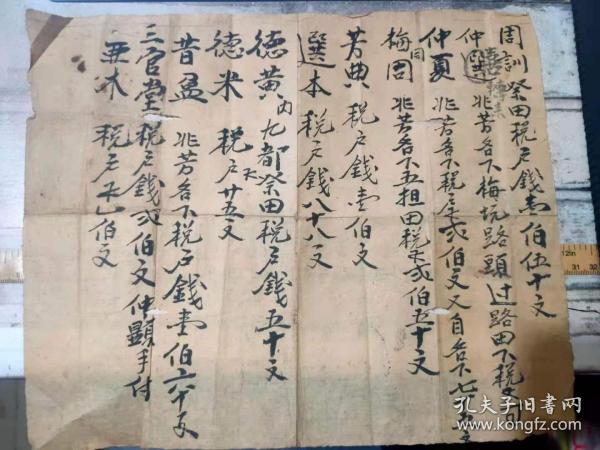 周訓祭田税户錢壹伯伍十文
仲選兆芳名下梅坑路頭过路田下税
仲夏 兆芳名下税户弍伯文又自名下七
梅同周 兆芳名下五担田税户弍伯五十文
芳典 税户錢壹伯文
選本 税户錢八十八文
德黄内九都祭田税户錢五十文
德米 税户廿五文
昔孟 兆芳名下税户錢壹伯六十文
三官堂税户錢弍伯文仲顯手付
税户 伯文
12in
31 32
孔夫子旧书网
www.kongfz.com